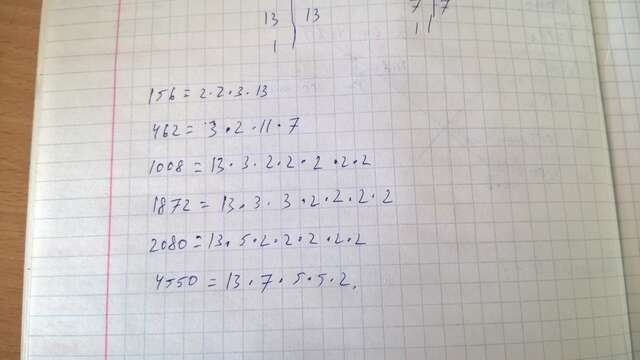 13 | 13 7 | 7
1 1 |
156 = 2·2·3·13
462 = 3·2·11·7
1008 = 13·3·2·2·2·2·2
1872 = 13·3·3·2·2·2·2
2080 = 13·5·2·2·2·2·2
4550 = 13·7·5·5·2.